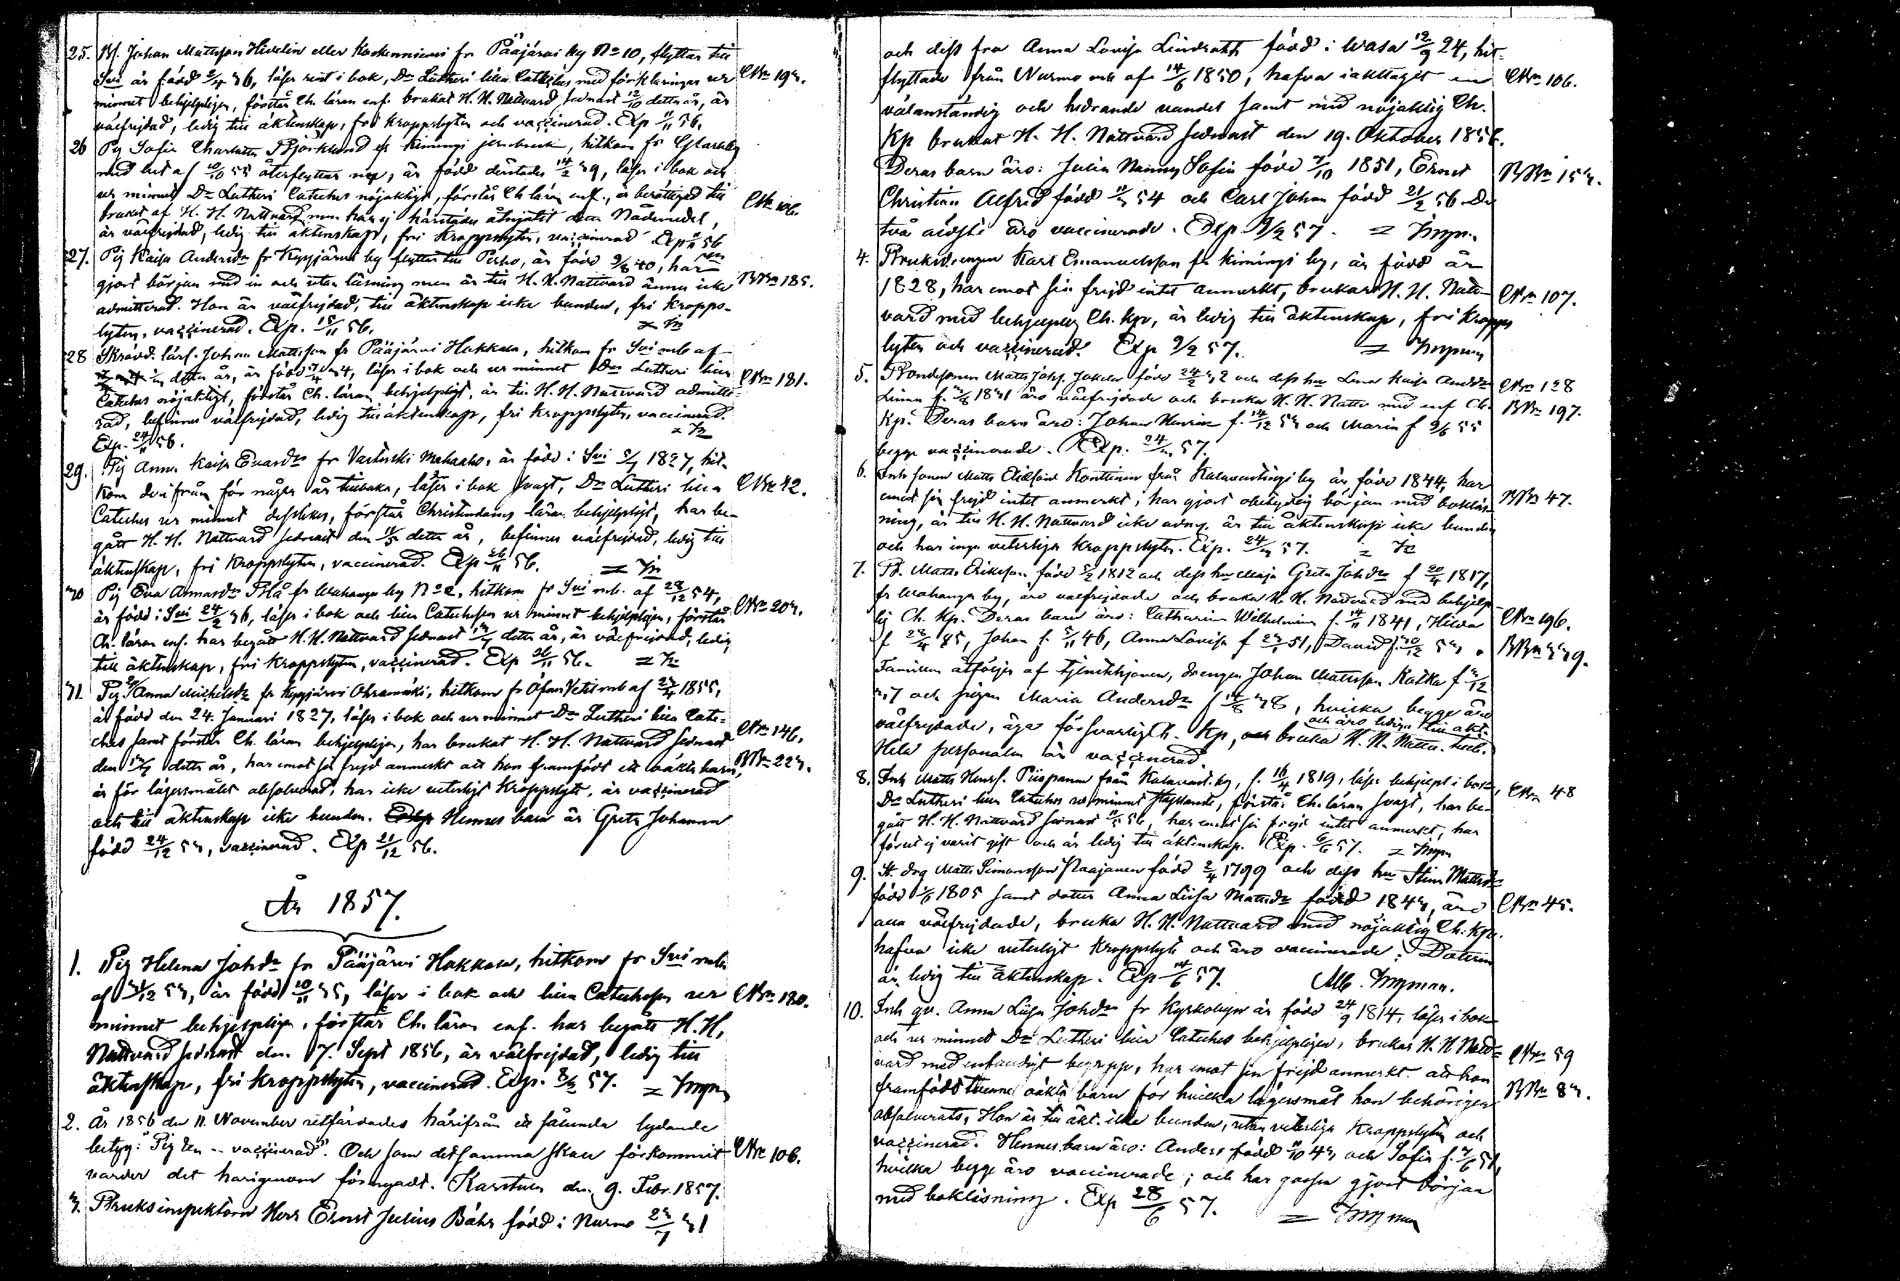 25. Bf. Johan Mattsson Hedelin eller Koskenniemi fr Pääjärvi by No 10, flyttar till
Svi är född 36, läser rent i bok, Dr Lutheri lilla Catches med förklaringar ur CNr 193.
minnet behjelpligen, förstår Ch. läran enf. brukat H. H. Nattvard sednast 12/10 detta år, är
välfrejdad, ledig till äktenskap, fri kroppslyten och vaccinerad. Exp 11/11 56.
26 Pig Sofia Charlotta Björklund fr Kimingi jernbruk, hitkom fr
med bet af 10/10 55 återflyttar nu, är född därstädes 14/2 39, läser i bok och
ur minnet Dr Lutheri Catches nöjaktigt, förstår Ch läran enf., är berättigad till
bruket af H. H. Nattvard men har ej härstädes åtnjutit detta Nådemedel, CNr 106.
är välfrejdad, ledig till äktenskap, fri kroppslyten, vaccinerad Exp 11/11 56
27. Pig Kaisa Andersdr fr Kyyjärvi by flyttar till Perho, är född 9/8 40, har
gjort början med in och utan läsning men är till H. H. Nattvard ännu icke BBNr 185.
admitterad. Hon är välfrejdad, till äktenskap icke bunden, fri kropps-
lyten, vaccinerad. Exp. 15/11 56.
28 Skrädd. lärl. Johan Mattsson fr Pääjärvi Hakkala, hitkom fr Svi mb af
detta år, är född 34, läser i bok och ur minnet Dr Lutheri lilla CNr 181.
Catches nöjaktigt, förstår Ch. läran behjelpligt, är till H. H. Nattvard admitte-
rad, befinnes välfrejdad, ledig till äktenskap, fri kroppslyten, vaccinerad.
Exp. 24/11 56.
29. Pig Anna Kaisa Evardr fr Vastinki Mahaaho, är född i Svi 1827, hit-
kom derifrån för några år tillbaka, läser i bok svagt, Dr Lutheri lilla CNr 42.
Catches ur minnet dessliks, förstår Christendomens läran behjelpligt, har be-
gått H. H. Nattvard sednast den detta år, befinnes välfrejdad, ledig till
äktenskap, fri kroppslyten, vaccinerad. Exp 26/11 56.
30 Pig Eva Abramsdr Plå fr Wahanga by No 2, hitkom fr Svi mb. af 28/12 54,
är född i Svi 24/2 36, läser i bok och lilla Catechesen ur minnet behjelpligen, förstår CNr 203.
Ch. läran enf. har begått H. H. Nattvard sednast detta år, är välfrejdad, ledig
till äktenskap, fri kroppslyten, vaccinerad. Exp 26/11 56.
31 Pig Anna Michelsdr fr Kyyjärvi Oksamäki, hitkom fr Öfver Vetil mb af 1855,
är född den 24. Januari 1827, läser i bok och ur minnet Dr Lutheri lilla Cate-
ches samt förstår Ch. läran behjelpligen, har brukat H. H. Nattvard sednast CNr 146.
den detta år, har emot sin frejd anmerkt att hon framfödt ett oäkta barn, BBNr 223.
är för lägersmålet absolverad, har icke veterligt kroppslyte, är vaccinerad
och till äktenskap icke bunden. Hennes barn är Greta Johanna
född 24/12 53, vaccinerad. Exp 21/12 56.
År 1857.
1. Pig Helena Johsdr fr Pääjärvi Hakkala, hitkom fr Svi mb
af 31/12 53, är född 10/11 35, läser i bok och lilla Catechesen ur CNr 180.
minnet behjelpligen, förstår Ch. läran enf. har begått H. H.
Nattvard sednast den 7. Sept 1856, är välfrejdad, ledig till
äktenskap, fri kroppslyten, vaccinerad. Exp. 8/2 57. Inman
2. År 1856 den 11. November utfärdades härifrån ett sålunda lydande
betyg: "Pig - - - vaccinerad". Och som detsamma skall förkommit CNr 106.
varder det härigenom förnyadt. Karstula den 9. Febr. 1857.
3. Bruksinspektoren Herr Ernst Julius Bähr född i Nurmo 23/7 31
och dess fru Anna Lovisa Lindroth född i Wasa 12/9 24, hit-
flyttade från Nurmo mb af 14/6 1850, hafva iakttaget en CNr 106.
välanständig och hedrande vandel samt med nöjaktig Ch.
Kp brukat H. H. Nattvard sednast den 19. Oktober 1856.
Deras barn äro: Julia Nanny Sofia född 1/10 1851, Ernst BBNr 153.
Christian Alfred född 54 och Carl Johan född 21/2 56. De
två äldste äro vaccinerade. Exp 9/2 57. Inmn.
4. Bruksdrengen Karl Emanuelsson fr Kimingi by, är född år
1828, har emot sin frejd intet anmerkt, brukar H. H. Natt- CNr 107.
vard med behjelplig Ch. kp, är ledig till äktenskap, fri kropps
lyten och vaccinerad. Exp 9/2 57. Inman
5. Bondesonen Matts Johss. Jokela född 24/2 32 och dess hu Lena Kaisa Andersdr CNr 128
1831 äro välfrejdade och bruka H. H. Nattv med enf Ch. BBNr 197.
Kp. Deras barn äro: Johan Henrik f. 14/12 53 och Maria f 9/6 55
begge vaccinerade. Exp. 24/3 57.
6. Inh sonen Matts Eliasson Kontinen från Kalmarinkylä by är född 1844, har
emot sin frejd intet anmerkt, har gjort obetydlig början med bokläs- BBNr 47.
ning, är till H. H. Nattvard icke adm. är till äktenskap icke bunden
och har inga veterliga kroppslyten. Exp. 24/3 57.
7. Bd. Matts Eriksson född 5/2 1812 och dess hu Maja Greta Johsdr f 20/4 1817,
fr Wahanga by, äro välfrejdade och bruka H. H. Nattvard med behjelp-
lig Ch. Kp. Deras barn äro: Catharina Wilhelmina f. 14/11 1841, Hilda CNr 196.
f 28/4 45, Johan f. 5/11 46, Anna Lovisa f 51, David f. 30/12 53. BBNr 339.
Familien åtföljes af tjenstehjonen, drengen Johan Mattsson Katka f 3/12
37 och pigan Maria Andersdr f 14/8 38, hvilka begge äro
välfrejdade, äga försvarlig Ch. Kp, och bruka H. H. Nattv. och äro lediga till äkt.
Hela personalen är vaccinerad.
8. Inh Matts Henrs. Piispanen från Kalmari by, f. 16/4 1819, läser behjelpl i bok, CNr 48
Dr Lutheri lilla Catches ur minnet förstår Ch. läran svagt, har be-
gått H. H. Nattvard sednast 56, har emot sin frejd intet anmerkt, har
förut ej varit gift och är ledig till äktenskap. Exp. 6/6 57. Inmn
9. St. drg Matts Simonsson Naajanen född 2/4 1799 och dess hu Stina Mattsdr
född 1/6 1805 samt dotter Anna Liisa Mattsdr född 1843, äro CNr 45.
alla välfrejdade, bruka H. H. Nattvard med nöjaktig Ch. Kp.
hafva icke veterligt kroppslyte och äro vaccinerade; Dottern
är ledig till äktenskap. Exp 14/6 57. Alb. Inman.
10. Inh qv. Anna Liisa Johsdr fr Kyrkobyn är född 24/9 1814, läser i bok
och ur minnet Dr Lutheri lilla Catches behjelpligen, brukar H. H Natt- CNr 59
vard med enfaldigt begrepp, har emot sin frejd anmerkt att hon
framfödt tvenne oäkta barn för hvilka lägersmål hon behörigen BBNr 83.
absolverats. Hon är till äkt. icke bunden, utan veterliga kroppslyten och
vaccinerad. Hennes barn äro: Anders född 11/10 43 och Sofia f. 3/6 51,
hvilka begge äro vaccinerade; och har gossen gjort början
med bokläsning. Exp 28/6 57. Inman